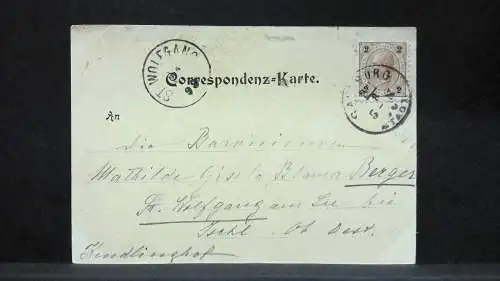 ST. WOLFGANG
Correspondenz-Karte.
2 2
SALZBURG STADT
An
die Baroninnen
Mathilde Gisela Blanca Berger
St. Wolfgang am See bei
Ischl. Ob. Oest.
Kendlinghof